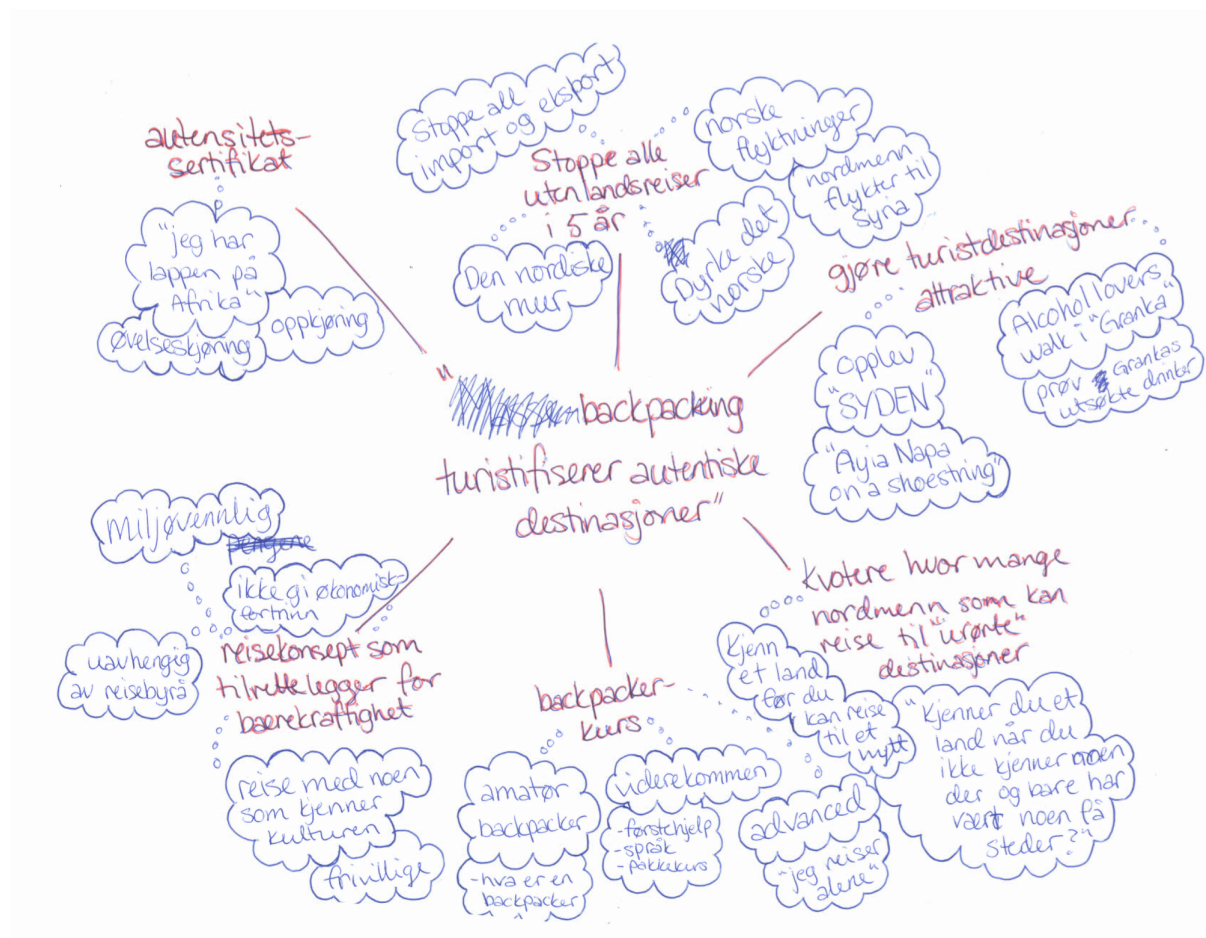 autensitets-
sertifikat
"jeg har
lappen på
Afrika"
øvelseskjøring
oppkjøring
Stoppe all
import og eksport
Stoppe alle
utenlandsreiser
i 5 år
Den nordiske
mur
Dyrke det
norske
norske
flyktninger
nordmenn
flykter til
Syria
gjøre turistdestinasjoner
attraktive
Opplev
"SYDEN"
"Ayia Napa
on a shoestring"
Alcohol lovers
walk i "Granka"
prøv Grankas
utsøkte drinker
"backpacking
turistifiserer autentiske
destinasjoner"
miljøvennlig
pengene
ikke gi økonomisk-
fortrinn
uavhengig
av reisebyrå
reisekonsept som
tilrettelegger for
bærekraftighet
reise med noen
som kjenner
kulturen
frivillige
backpacker-
kurs
amatør
backpacker
-hva er en
backpacker
viderekommen
-førstehjelp
-språk
-pakkekurs
advanced
"jeg reiser
alene"
Kvotere hvor mange
nordmenn som kan
reise til "urørte"
destinasjoner
Kjenn
et land
før du
kan reise
til et
nytt
"Kjenner du et
land når du
ikke kjenner noen
der og bare har
vært noen få
steder?"